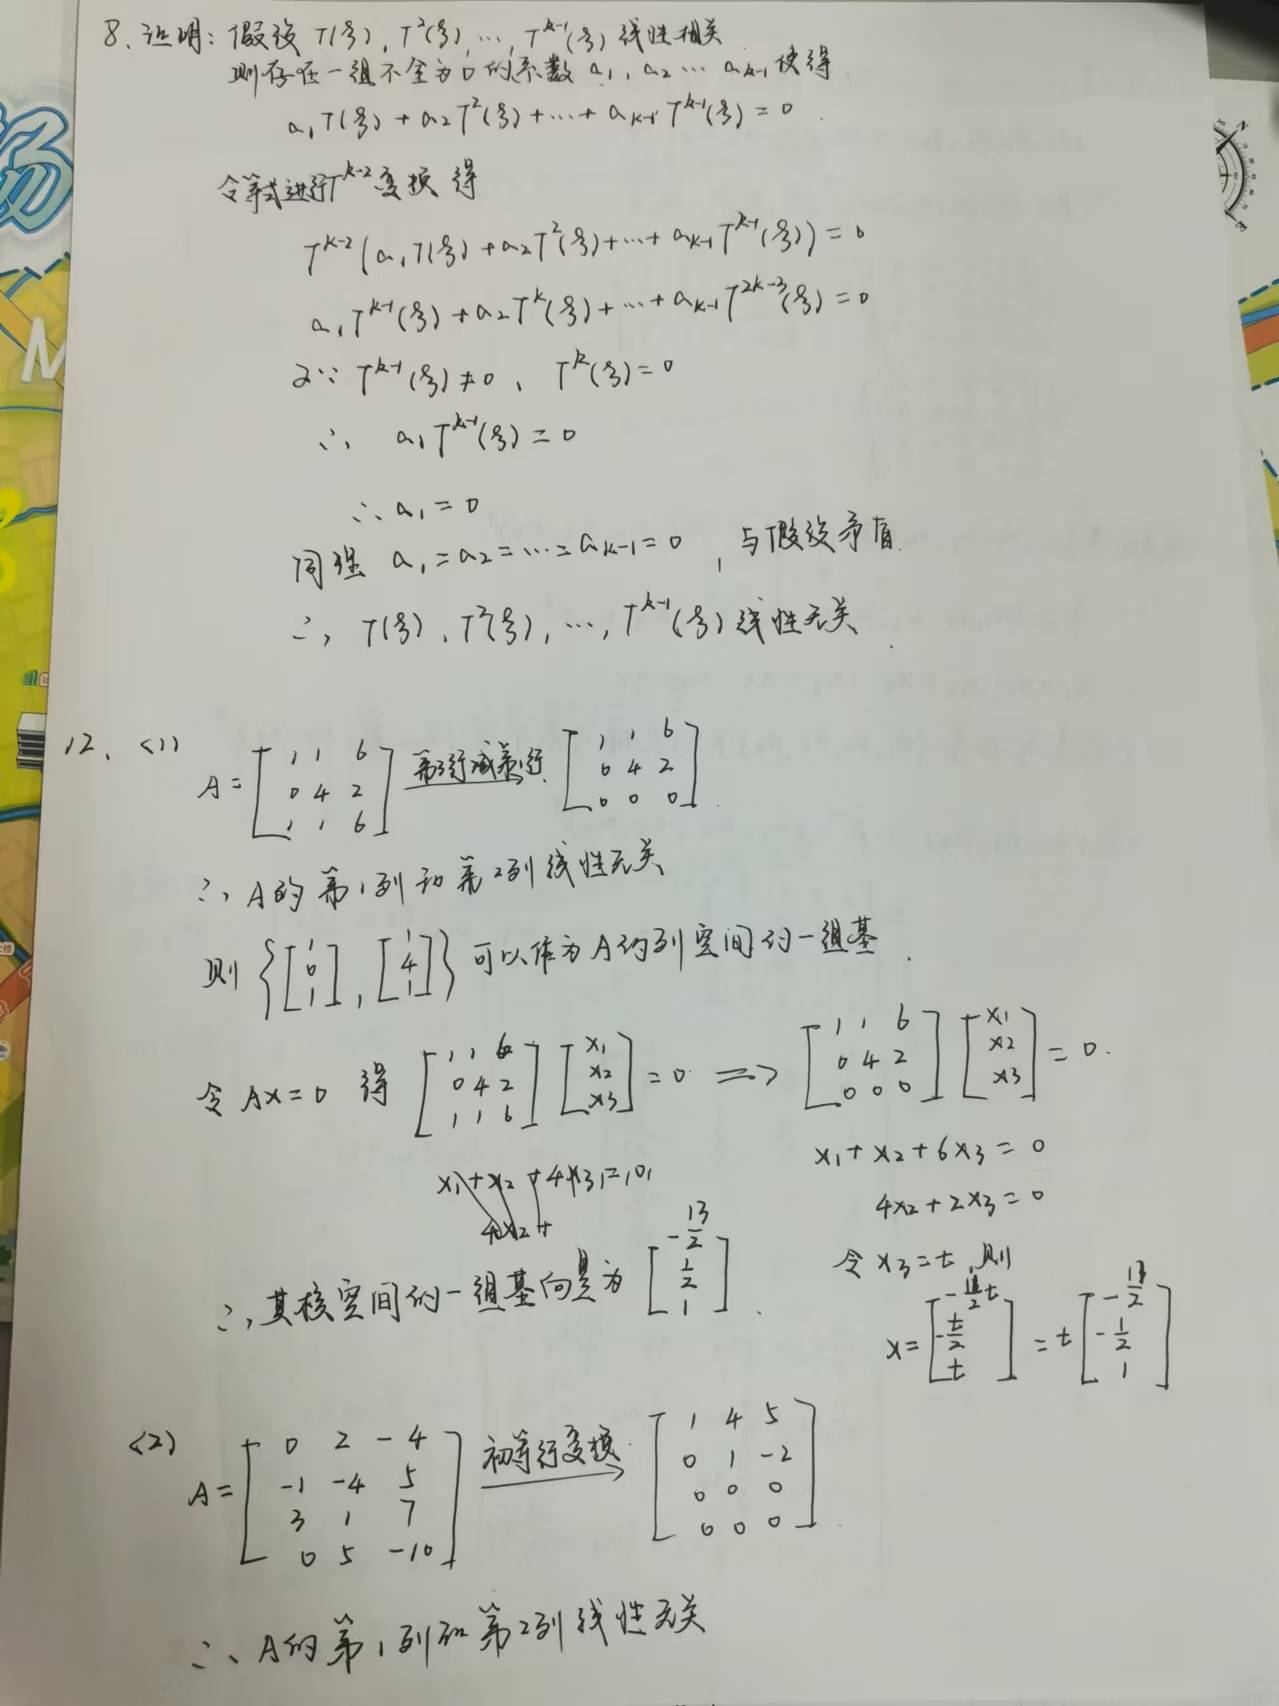 8、证明：假设 T(ξ), T²(ξ), …, Tᵏ⁻¹(ξ) 线性相关
则存在一组不全为0的系数 a₁, a₂ … aₖ₋₁ 使得
a₁T(ξ) + a₂T²(ξ) + … + aₖ₋₁Tᵏ⁻¹(ξ) = 0
令等式进行Tᵏ⁻²变换 得
Tᵏ⁻²(a₁T(ξ) + a₂T²(ξ) + … + aₖ₋₁Tᵏ⁻¹(ξ)) = 0
a₁Tᵏ⁻¹(ξ) + a₂Tᵏ(ξ) + … + aₖ₋₁T²ᵏ⁻³(ξ) = 0
又∵ Tᵏ⁻¹(ξ) ≠ 0、 Tᵏ(ξ) = 0
∴ a₁Tᵏ⁻¹(ξ) = 0
∴ a₁ = 0
同理 a₁ = a₂ = … = aₖ₋₁ = 0 , 与假设矛盾.
∴, T(ξ), T²(ξ), …, Tᵏ⁻¹(ξ) 线性无关.
12、<1>
A = [1 1 6; 0 4 2; 1 1 6] 第3行减第1行 [1 1 6; 0 4 2; 0 0 0].
∴, A的第1列和第2列线性无关
则 {[1; 0; 1], [1; 4; 1]} 可以作为A的列空间的一组基.
令 Ax = 0 得 [1 1 6; 0 4 2; 1 1 6] [x₁; x₂; x₃] = 0 ⇒ [1 1 6; 0 4 2; 0 0 0] [x₁; x₂; x₃] = 0.
x₁ + x₂ + 6x₃ = 0
4x₂ + 2x₃ = 0
令 x₃ = t, 则
x = [-11/2 t; -t/2; t] = t[-11/2; -1/2; 1]
∴, 其核空间的一组基向量为 [-13/2; 1/2; 1].
<2>
A = [0 2 -4; -1 -4 5; 3 1 7; 0 5 -10] 初等行变换 [1 4 5; 0 1 -2; 0 0 0; 0 0 0].
∴、A的第1列和第2列线性无关